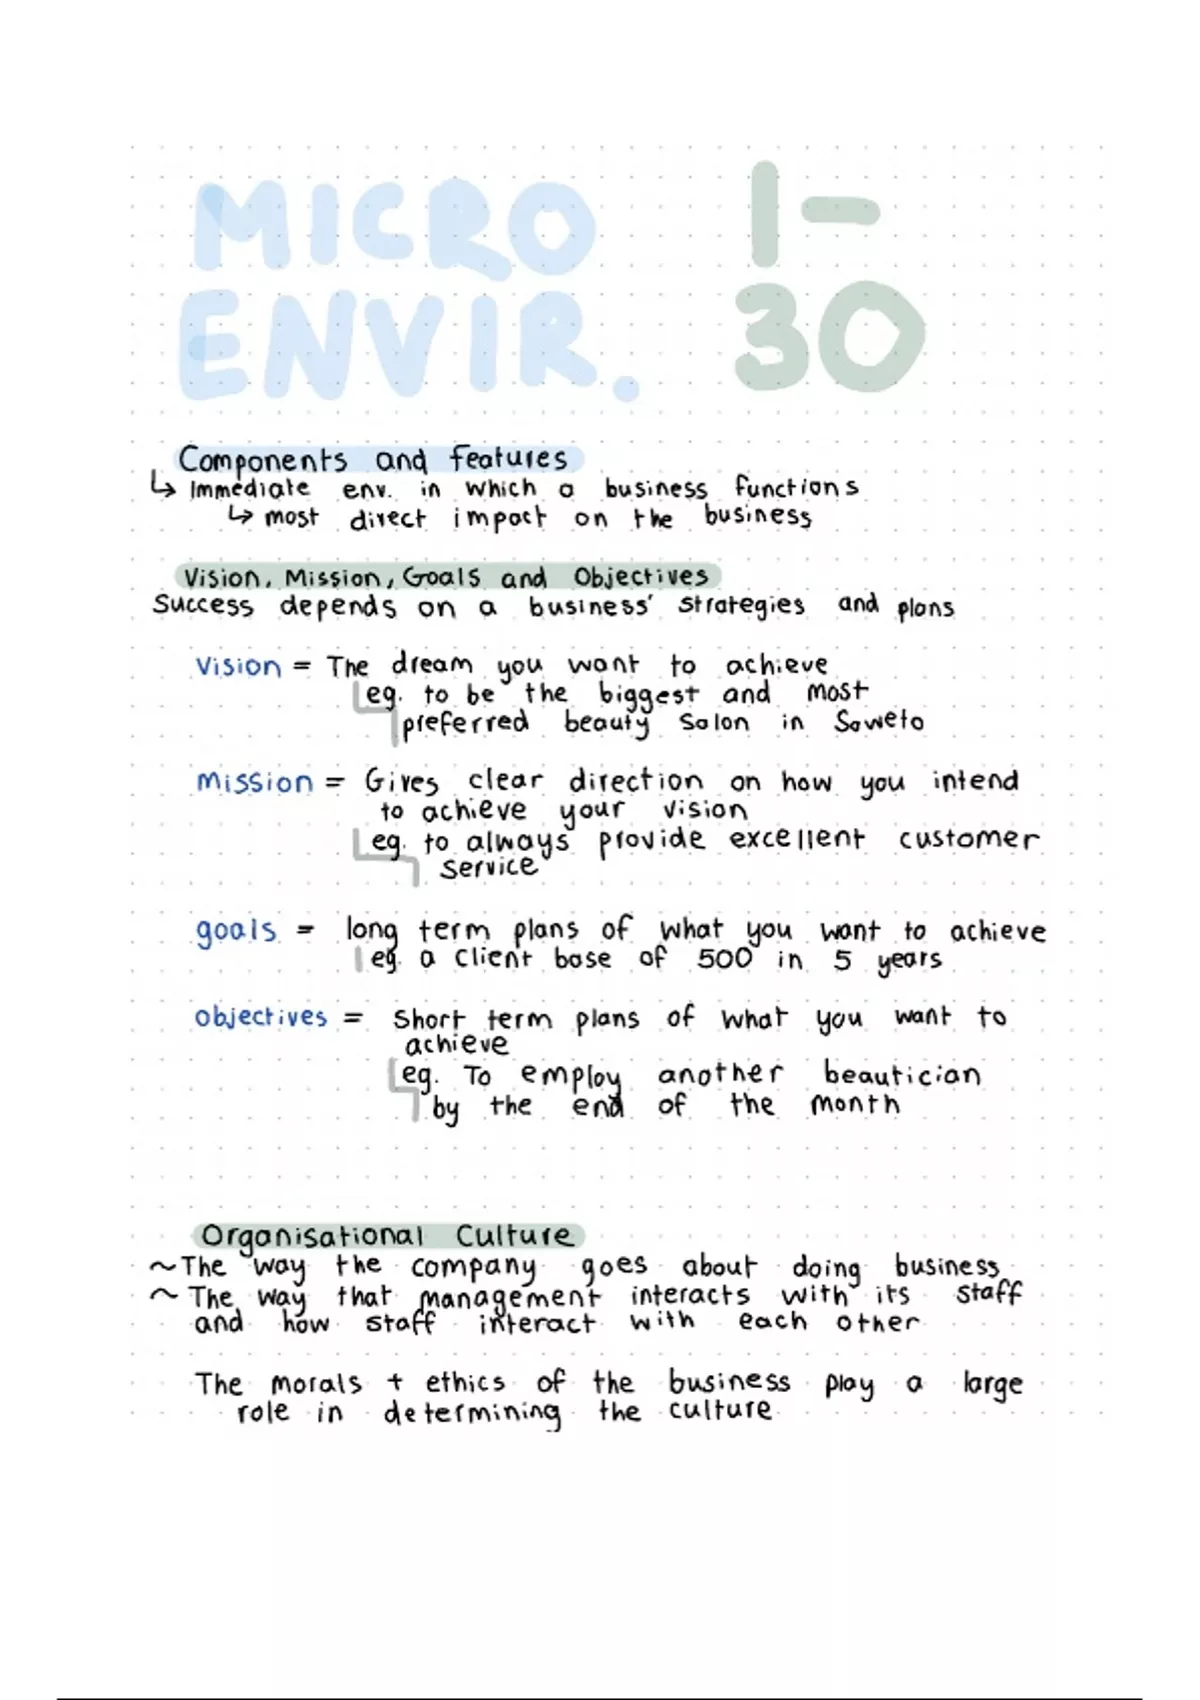 MICRO 1-
ENVIR. 30
Components and features
↳ Immediate env. in which a business functions
↳ most direct impact on the business
Vision, Mission, Goals and Objectives
Success depends on a business' strategies and plans
Vision = The dream you want to achieve
eg. to be the biggest and most
preferred beauty salon in Soweto
Mission = Gives clear direction on how you intend
to achieve your vision
eg. to always provide excellent customer
service
goals = long term plans of what you want to achieve
eg. a client base of 500 in 5 years
objectives = short term plans of what you want to
achieve
eg. To employ another beautician
by the end of the month
Organisational Culture
~The way the company goes about doing business
~ The way that management interacts with its staff
and how staff interact with each other
The morals + ethics of the business play a large
role in determining the culture